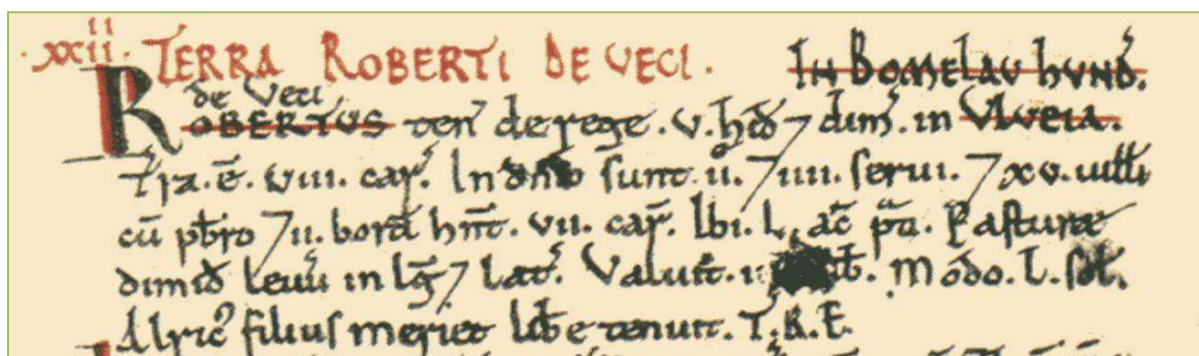 .xxii. TERRA ROBERTI DE VECI. IN BOMELAU HVND'.
de Veci
ROBERTUS ten' de rege. v. hid' 7 dim'. in VLVEIA.
T'ra. ē. viii. car'. In sunt. ii. 7 iiii. serui. 7 xv. uill'i
cū pb'ro 7 ii. bord' hn̄t. vii. car'. Ibi. L. ac̄ p̄a. Pasturæ
dimid' leuu' in lḡ 7 lat'. Valuit. Modo. L. sol'.
Alric' filius meriet lib'e tenuit. T.R.E.